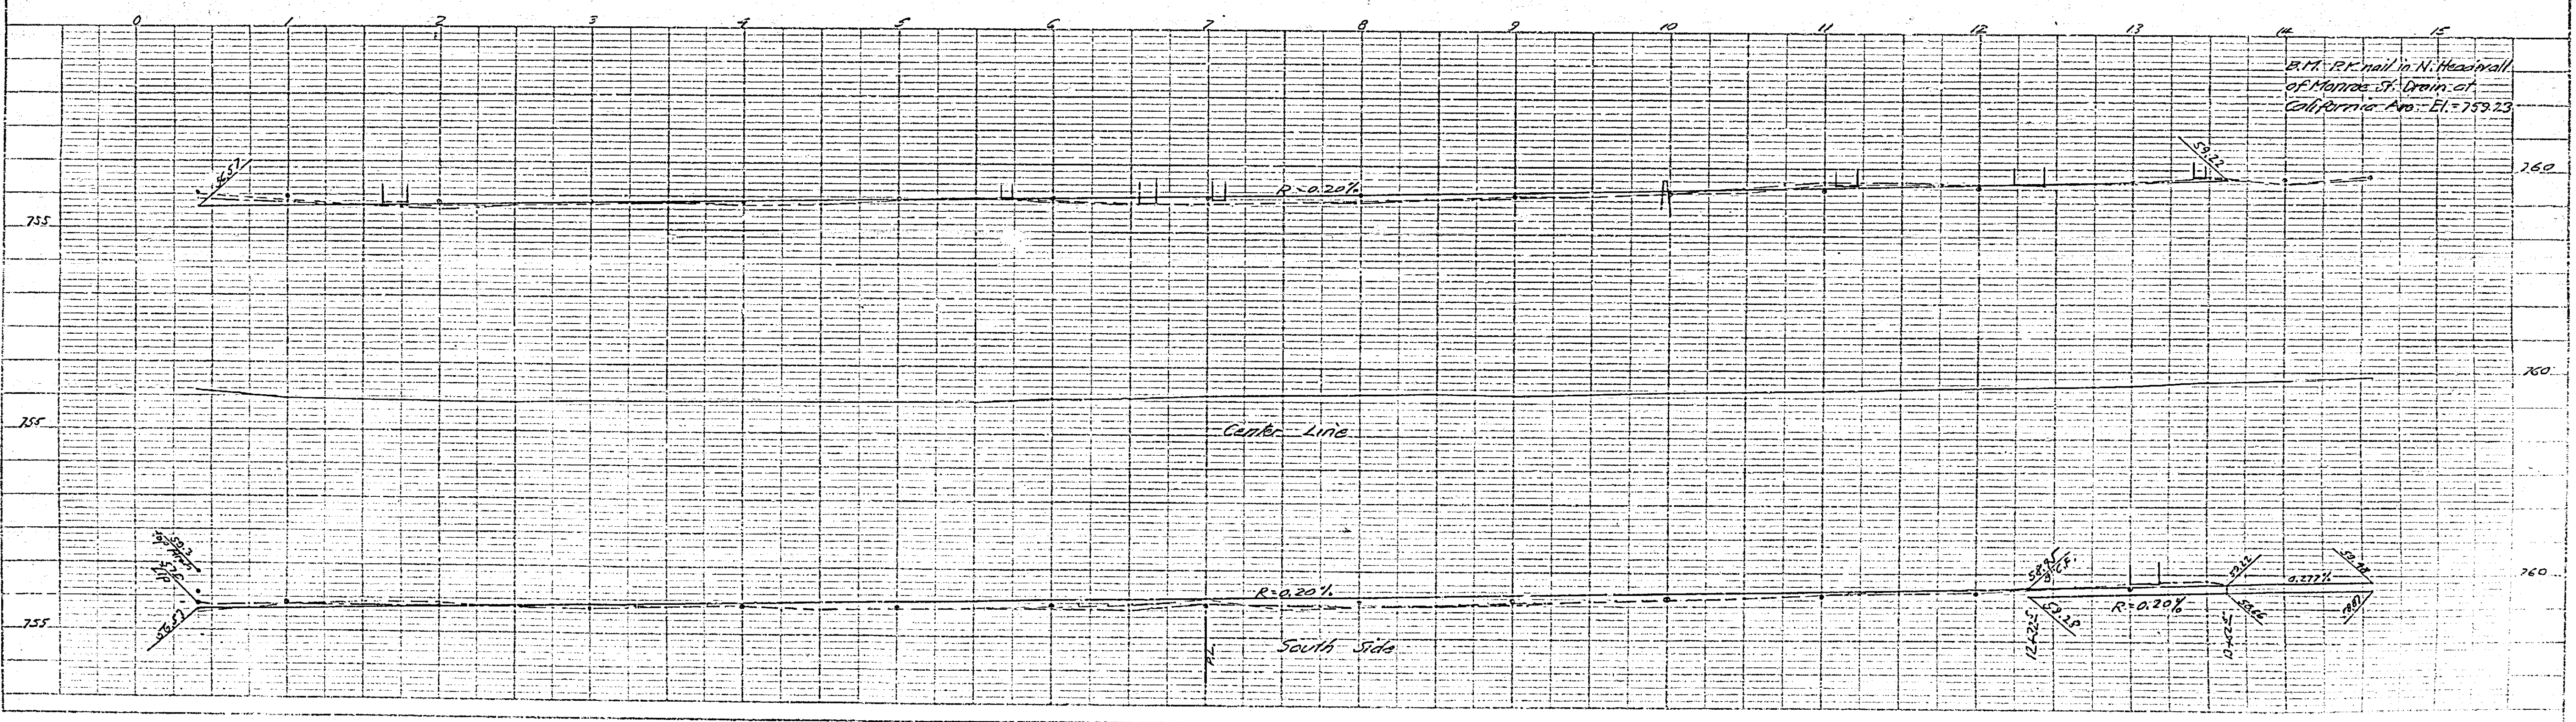 0 1 2 3 4 5 6 7 8 9 10 11 12 13 14 15
B.M. P.K nail in N. Headwall
of Monroe St. Drain at
California Ave. El.=759.23
56.57
59.22
760
R=0.20%
755
760
755
Center Line
59.3
56.57
58.95
59.22
59.78
0.277%
760
R=0.20%
58.28
R=0.20%
755
P.L.
South Side